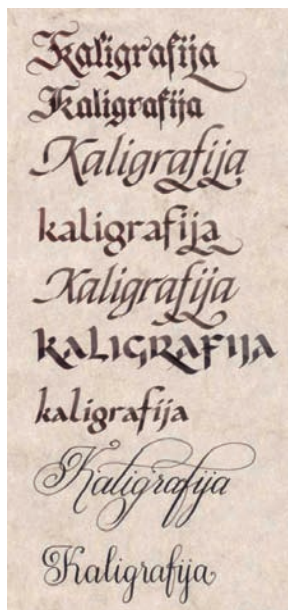 Kaligrafija
Kaligrafija
Kaligrafija
kaligrafija
Kaligrafija
kaligrafija
kaligrafija
Kaligrafija
Kaligrafija